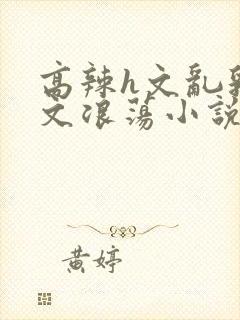 高辣h文亂
文浪蕩小說
黃婷